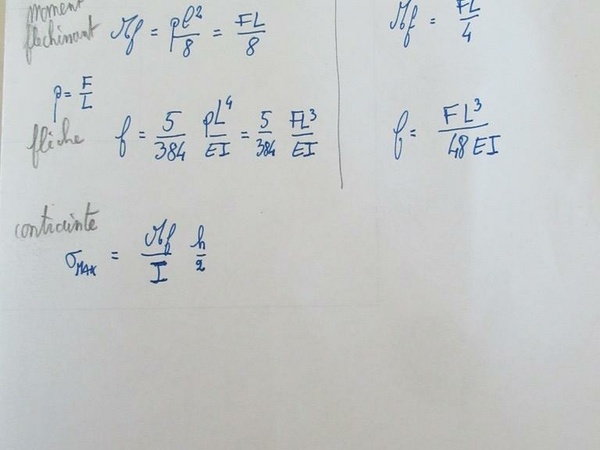 moment
fléchissant Mf = pl²/8 = FL/8
Mf = FL/4
p = F/L
flèche f = 5/384 pL⁴/EI = 5/384 FL³/EI
f = FL³/48EI
contrainte
σMAX = Mf/I h/2